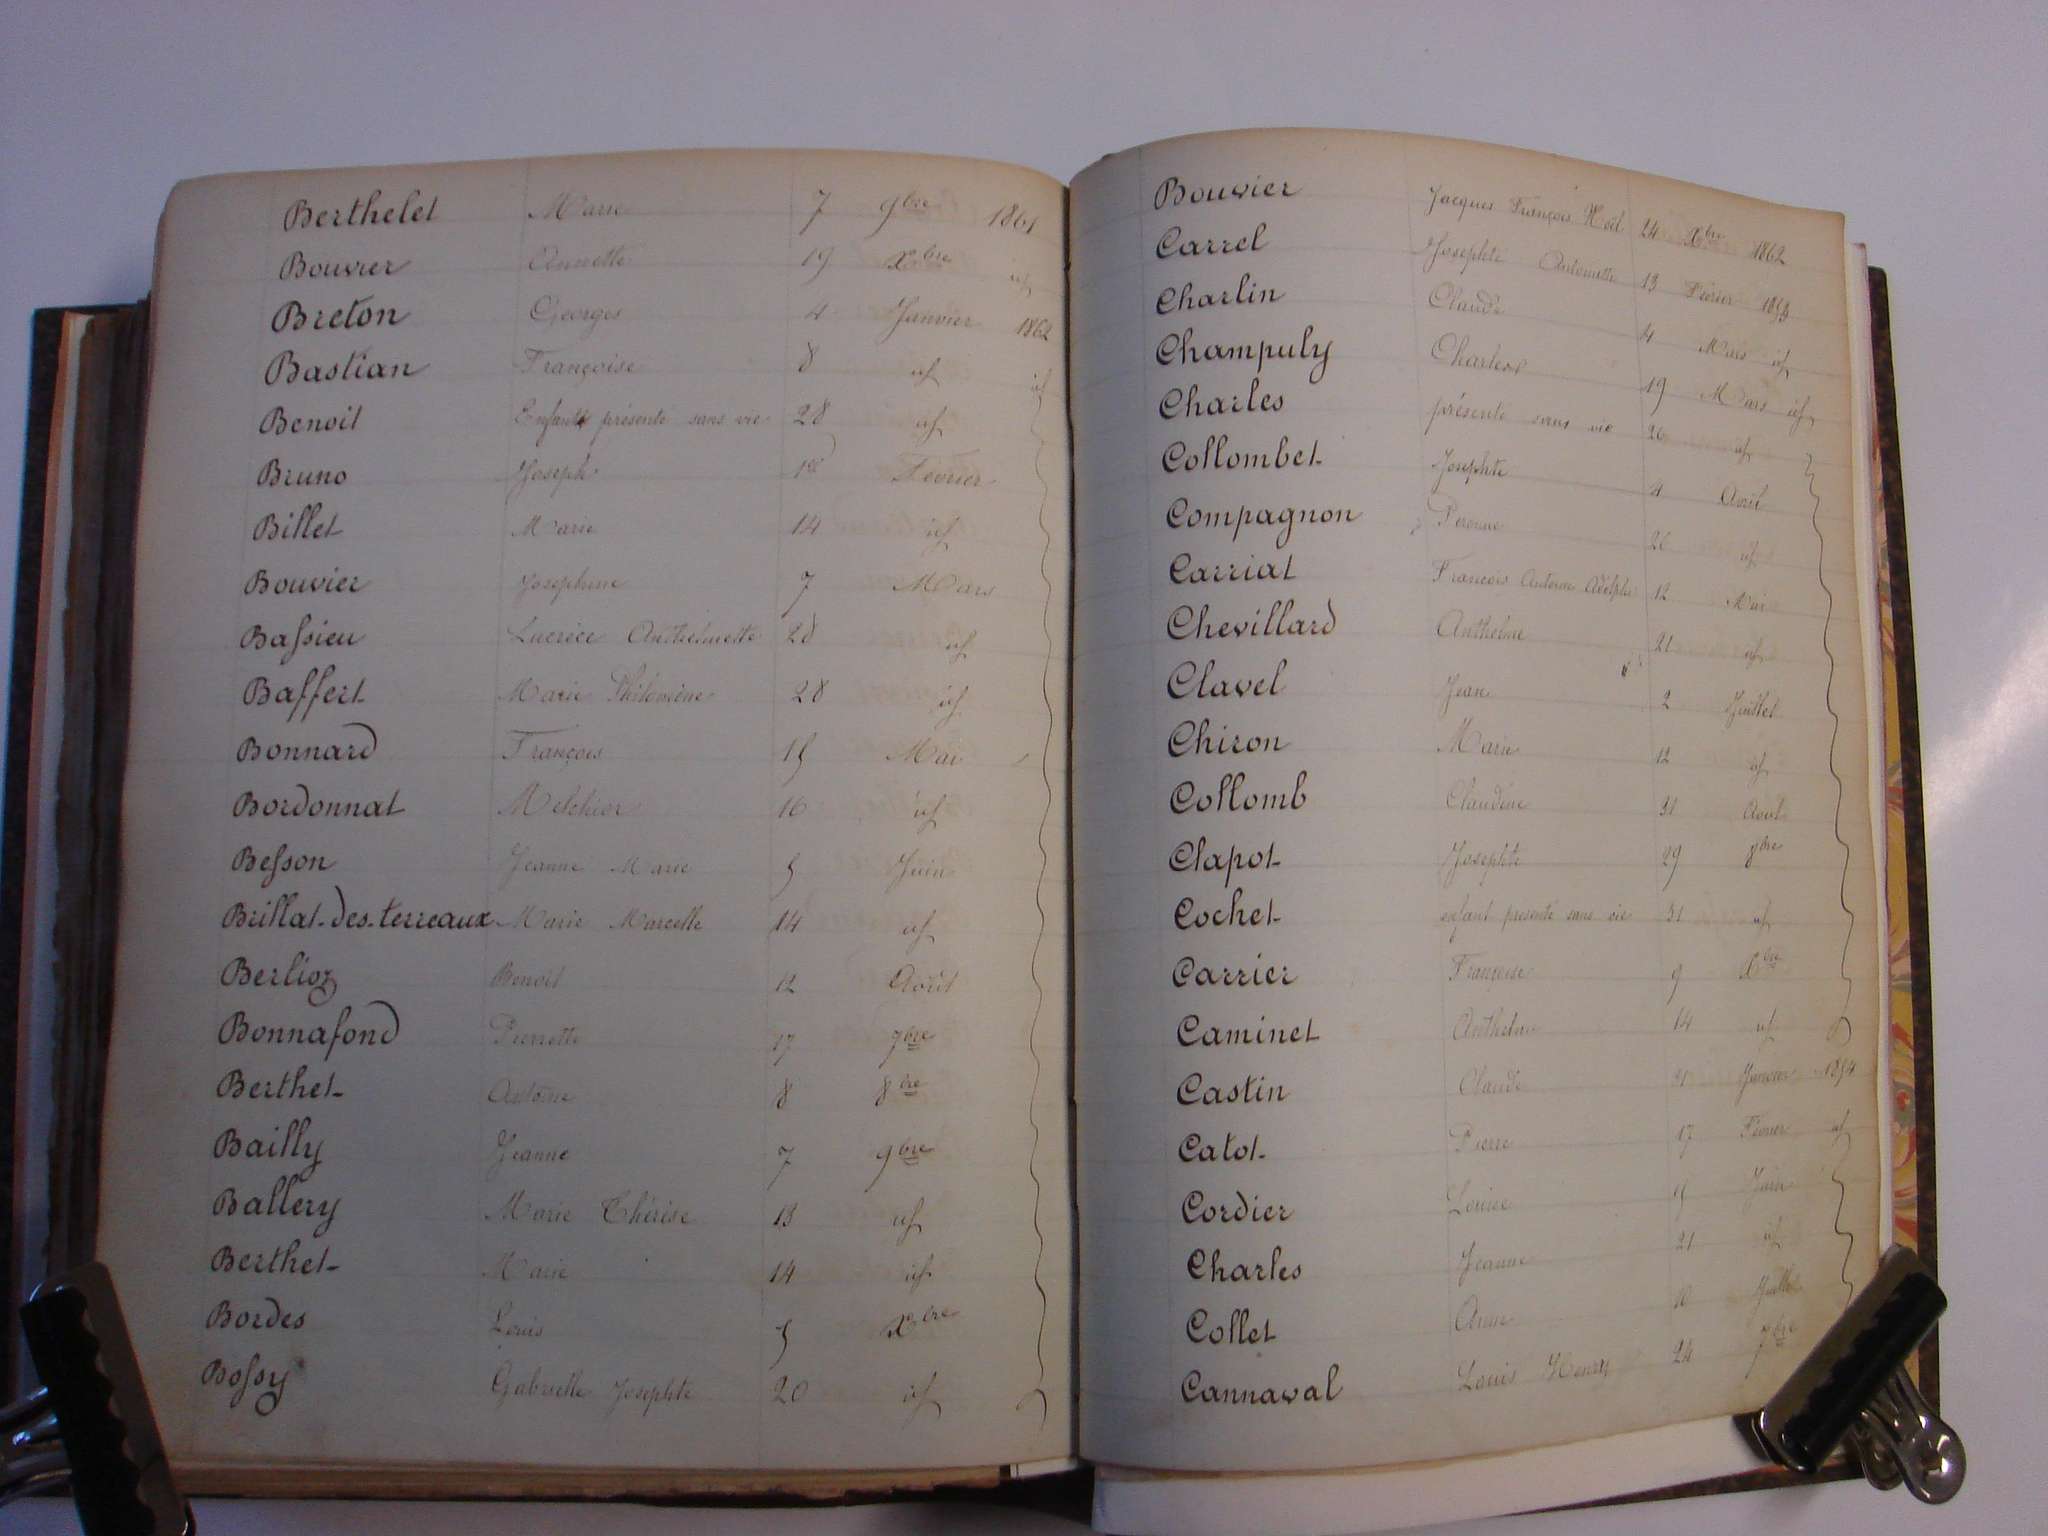 Berthelet Marie 7 9bre 1861
Bouvier Annette 19 Xbre id
Breton Georges 4 Janvier 1862
Bastian Françoise 8 id id
Benoit Enfant présenté sans vie 28 id
Bruno Joseph 1er Février
Billet Marie 14 id
Bouvier Josephine 7 Mars
Bassieu Lucrèce Anthelmette 28 id
Baffert Marie Philomène 28 id
Bonnard François 15 Mai
Bordonnat Melchior 16 id
Besson Jeanne Marie 5 Juin
Brillat-des-terreaux Marie Marcelle 14 id
Berlioz Benoit 12 Août
Bonnafond Pierrette 17 7bre
Berthet Antoine 8 8bre
Bailly Jeanne 7 9bre
Ballery Marie Thérèse 13 id
Berthet Marie 14 id
Bordes Louis 5 Xbre
Bossy Gabrielle Josephte 20 id
Bouvier Jacques François Noël 24 Xbre 1862
Carrel Josephte Antoinette 13 Février 1853
Charlin Claude 4 Mars id
Champuly Charles 19 Mars id
Charles présenté sans vie 26 id
Collombet Josephte 4 Avril
Compagnon Peronne 26 id
Carriat François Antoine Adolphe 12 Mai
Chevillard Anthelme 21 id
Clavel Jean 2 Juillet
Chiron Marie 12 id
Collomb Claudine 31 Août
Clapot Josephte 29 8bre
Cochet enfant présenté sans vie 31 id
Carrier Françoise 9 Xbre
Caminet Anthelme 14 id
Castin Claude 21 Janvier 1854
Catot Pierre 17 Février id
Cordier Louise 9 Juin
Charles Jeanne 21 id
Collet Anne Juillet
Cannaval Louis Henry 24 7bre